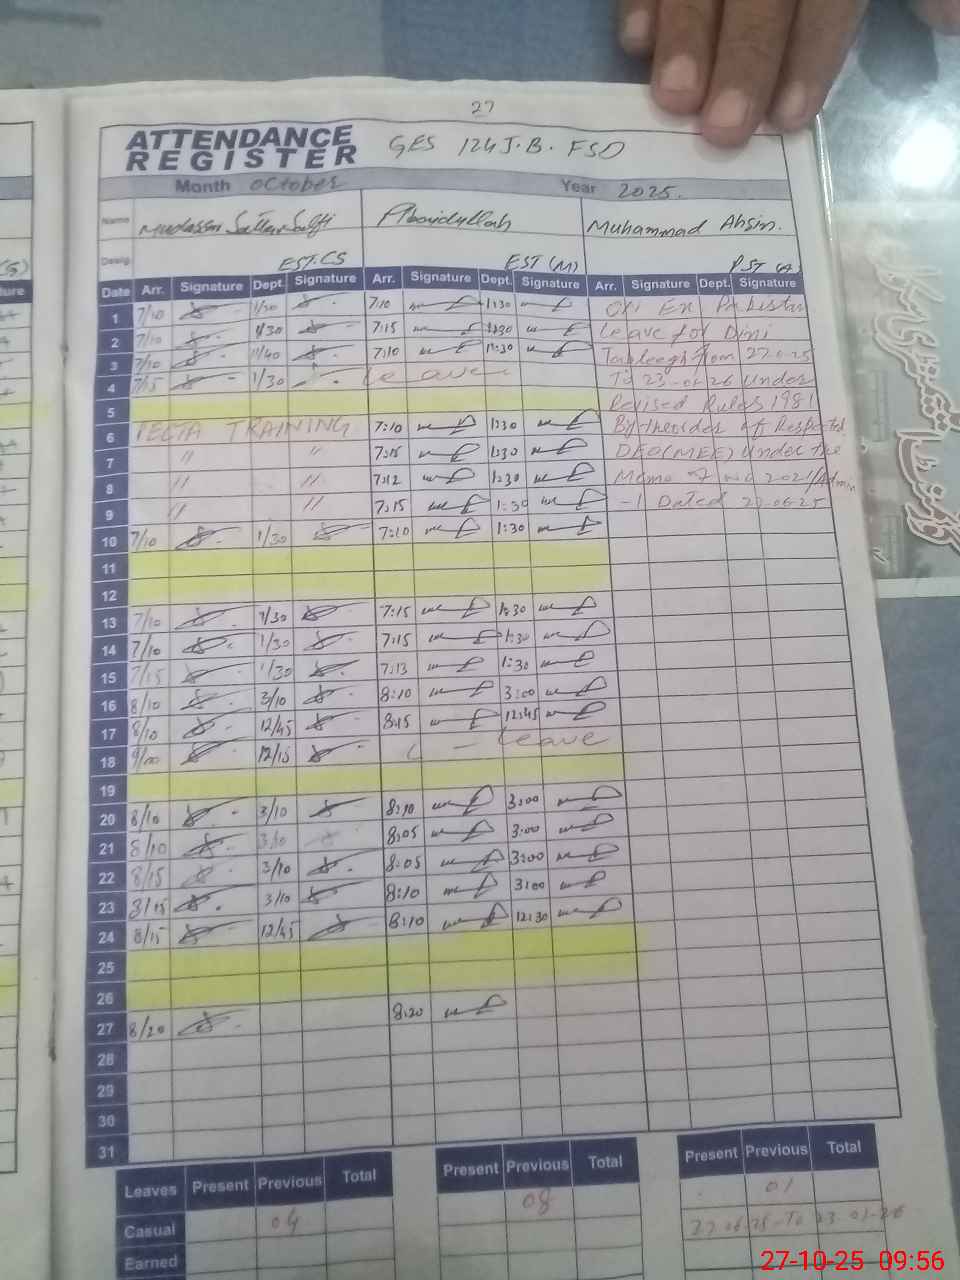 27
ATTENDANCE
REGISTER
GES 124 J.B. FSD
Month October Year 2025.
Name Abaidullah Muhammad Ahsin.
Desig. EST.CS EST (M) PST (A)
Date Arr. Signature Dept. Signature Arr. Signature Dept. Signature Arr. Signature Dept. Signature
1 7/10 1/30 7:10 1:30 Ex Pakistan
2 7/10 1/30 7:15 1:30 Leave for Dini
3 7/10 11/40 7:10 11:30 Tableegh from
4 7/15 1/30 Leave To 23-01-26 Under
5 Revised Rules 1981
6 PECTA TRAINING 7:10 1:30 By the order of Respected
7 " " 7:15 1:30 DEO(MEE) Under the
8 " " 7:12 1:30 Memo 2021/Admin
9 " " 7:15 1:30 -1 Dated
10 7/10 1/30 7:10 1:30
11
12
13 7/10 1/30 7:15 1:30
14 7/10 1/30 7:15 1:30
15 7/15 1/30 7:13 1:30
16 8/10 3/10 8:10 3:00
17 8/10 12/45 8:15 12:45
18 9/00 12/15 Leave
19
20 8/10 3/10 8:10 3:00
21 8/10 3/10 8:05 3:00
22 8/15 3/10 8:05 3:00
23 8/15 3/10 8:10 3:00
24 8/15 12/45 8:10 12:30
25
26
27 8/20 8:20
28
29
30
31
Leaves Present Previous Total Present Previous Total Present Previous Total
Casual 04 08 01
Earned
27-10-25 09:56